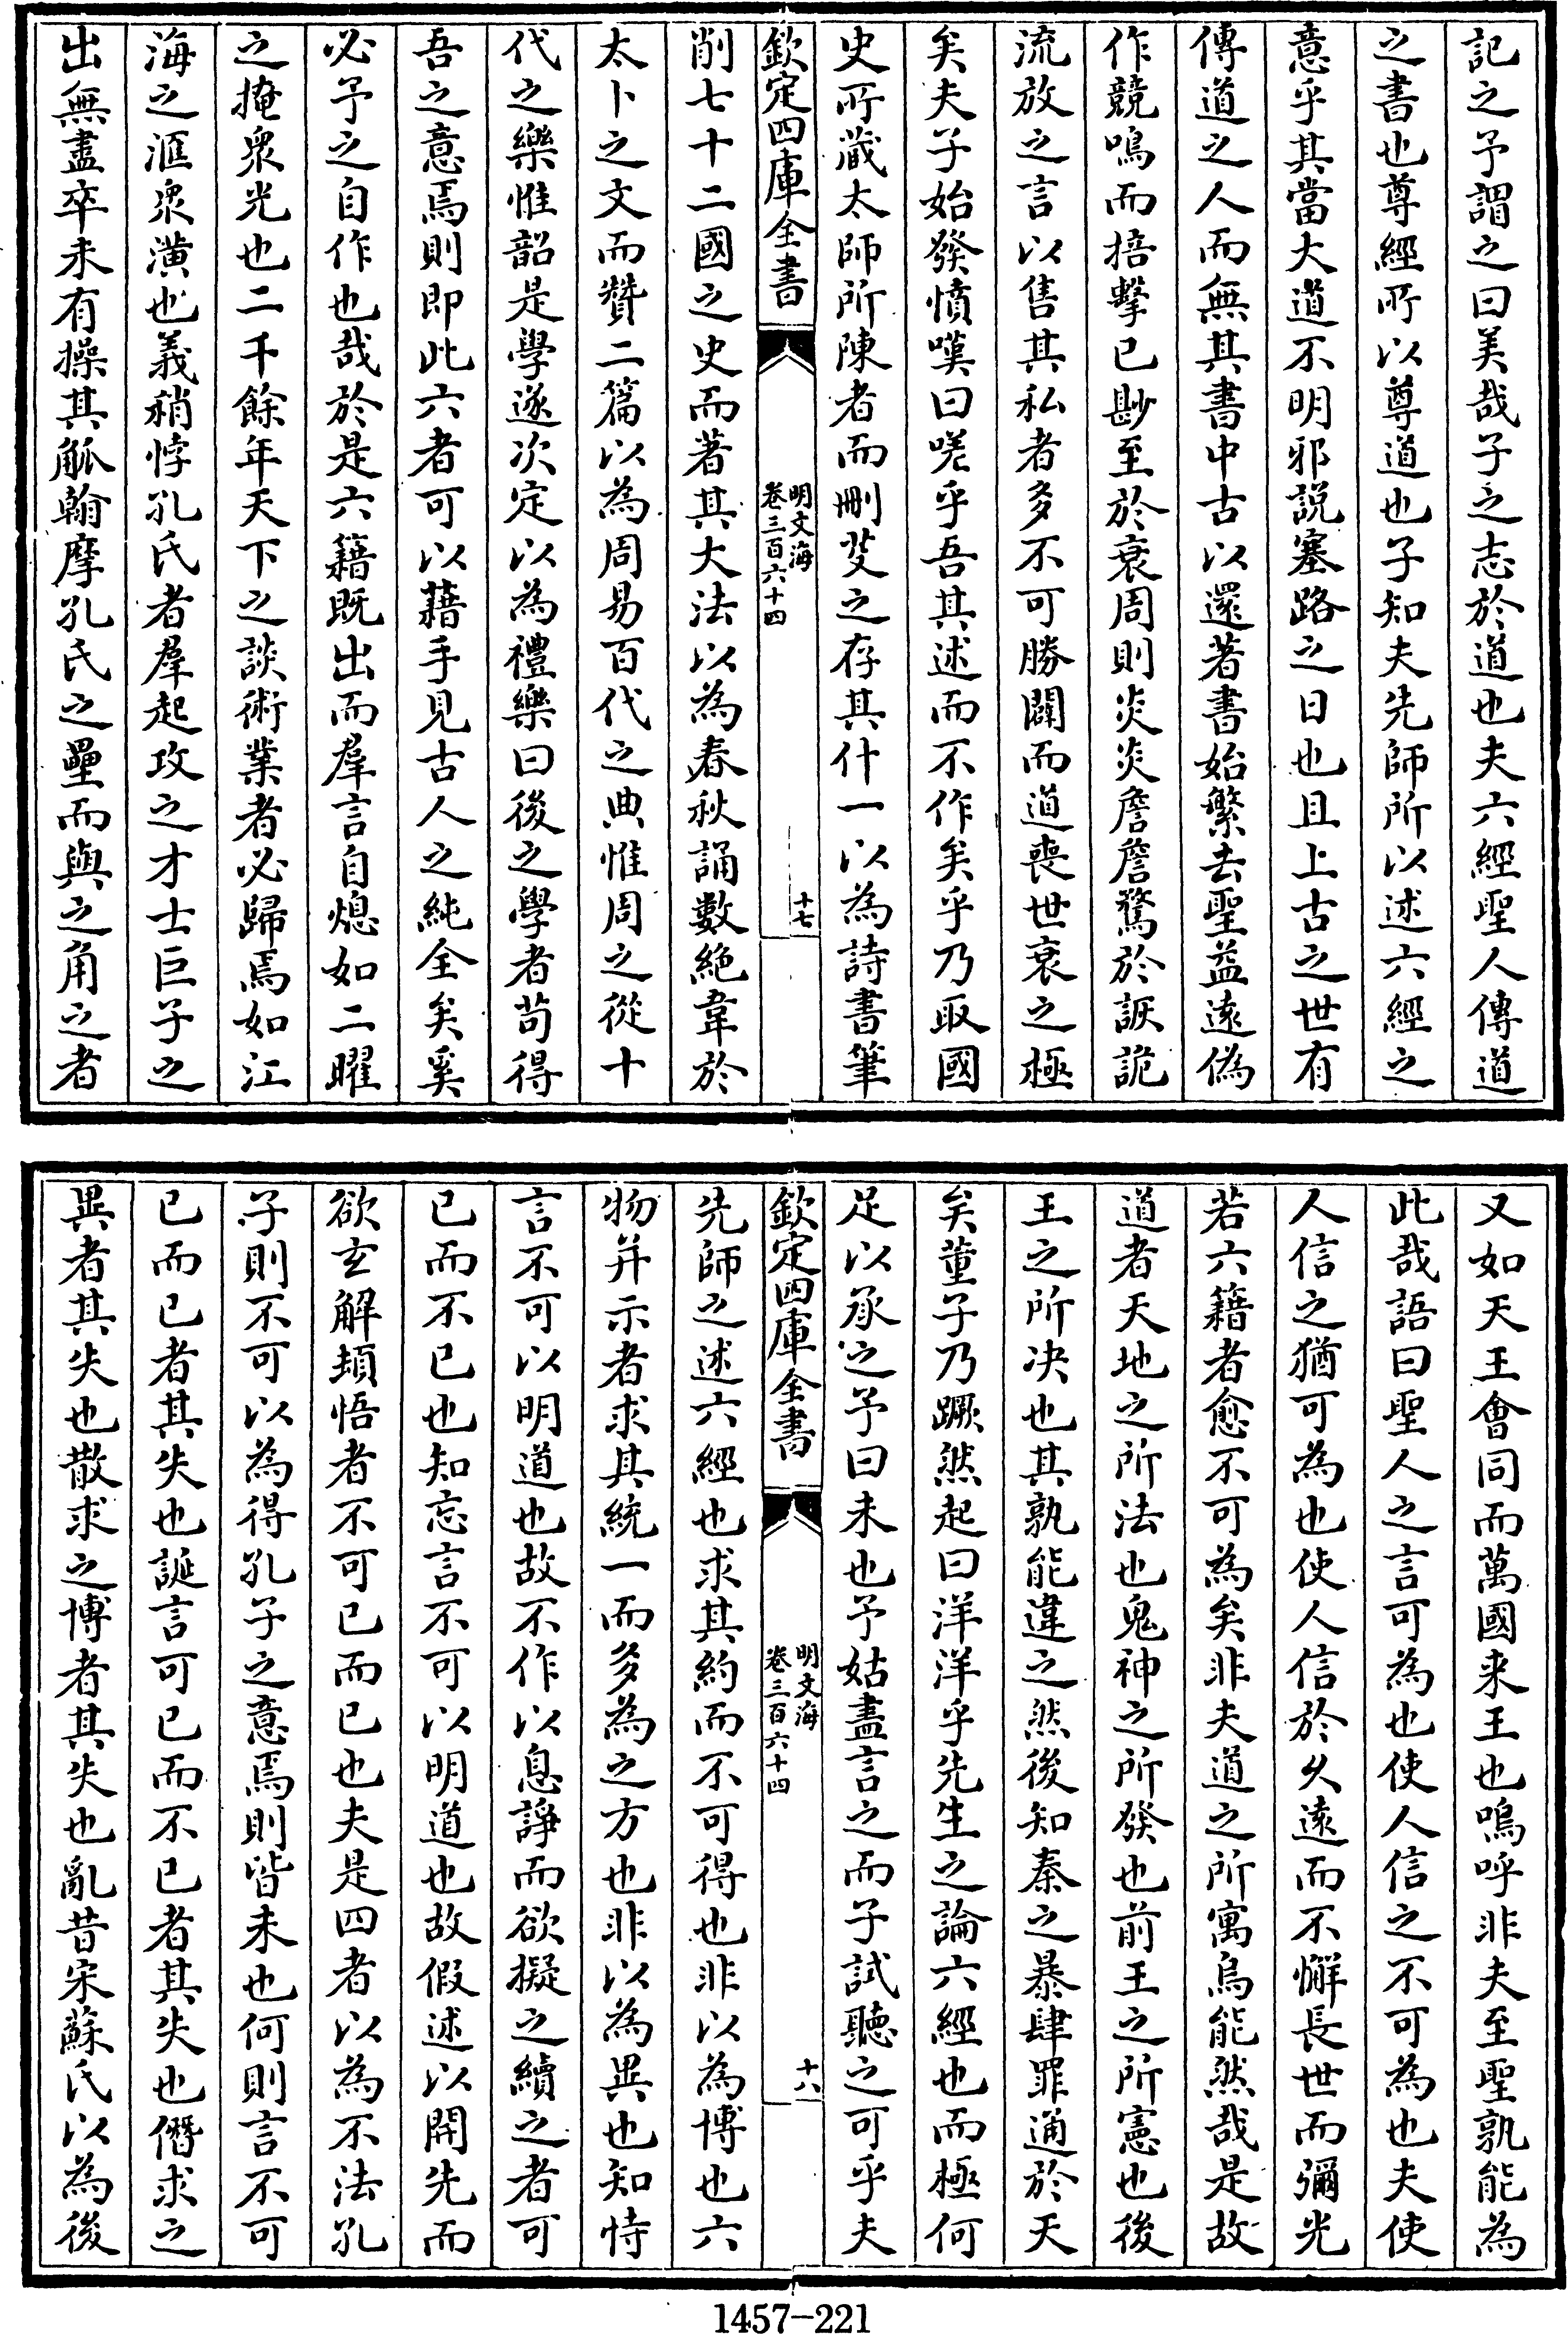 記之予謂之曰美哉子之志於道也夫六經聖人傳道
之書也尊經所以尊道也子知夫先師所以述六經之
意乎其當大道不明邪說塞路之日也且上古之世有
傳道之人而無其書中古以還著書始繁去聖益遠偽
作競鳴而掊擊已尠至於衰周則炎炎詹詹驚於詼詭
流放之言以售其私者多不可勝闢而道喪世衰之極
矣夫子始發憤嘆曰嗟乎吾其述而不作矣乎乃取國
史所藏太師所陳者而刪芟之存其什一以為詩書筆
欽定四庫全書
明文海
卷三百六十四
十七
削七十二國之史而著其大法以為春秋誦數絶韋於
太卜之文而贊二篇以為周易百代之典惟周之從十
代之樂惟韶是學遂次定以為禮樂曰後之學者苟得
吾之意焉則即此六者可以藉手見古人之純全矣奚
必予之自作也哉於是六籍既出而羣言自熄如二曜
之掩衆光也二千餘年天下之談術業者必歸焉如江
海之滙衆潢也義稍悖孔氏者羣起攻之才士巨子之
出無盡卒未有操其觚翰摩孔氏之壘而與之角之者
又如天王會同而萬國来王也嗚呼非夫至聖孰能為
此哉語曰聖人之言可為也使人信之不可為也夫使
人信之猶可為也使人信於久遠而不懈長世而彌光
若六籍者愈不可為矣非夫道之所寓烏能然哉是故
道者天地之所法也鬼神之所發也前王之所憲也後
王之所决也其孰能違之然後知秦之暴肆罪通於天
矣董子乃蹶然起曰洋洋乎先生之論六經也而極何
足以承之予曰未也予姑盡言之而子試聽之可乎夫
欽定四庫全書
明文海
卷三百六十四
十八
先師之述六經也求其約而不可得也非以為博也六
物并示者求其統一而多為之方也非以為異也知恃
言不可以明道也故不作以息諍而欲擬之續之者可
已而不已也知忘言不可以明道也故假述以開先而
欲玄解頓悟者不可已而已也夫是四者以為不法孔
子則不可以為得孔子之意焉則皆未也何則言不可
已而已者其失也誕言可已而不已者其失也僭求之
異者其失也散求之博者其失也亂昔宋蘇氏以為後
1457-221